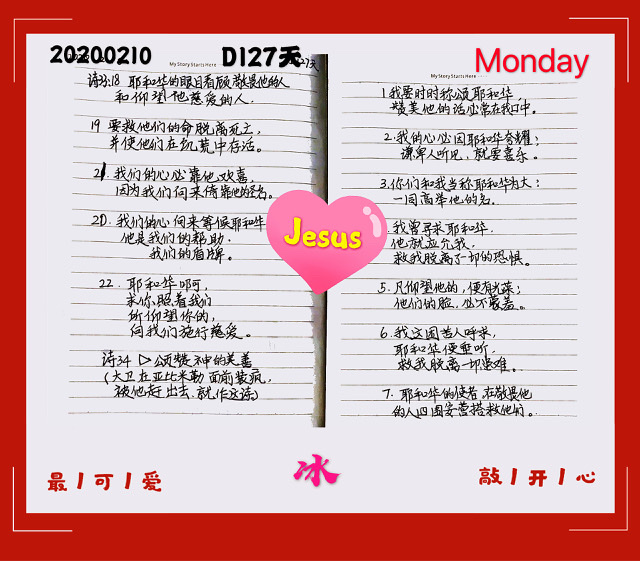 20200210
D127天
Monday
My Story Starts Here
诗33:18 耶和华的眼目看顾敬畏他的人
和仰望他慈爱的人.
19 要救他们的命脱离死亡,
并使他们在饥荒中存活。
21. 我们的心必靠他欢喜,
因为我们向来倚靠他的圣名。
20. 我们的心向来等候耶和华
他是我们的帮助.
我们的盾牌.
22. 耶和华啊可,
求你照着我们
所仰望你的,
向我们施行慈爱。
诗34 ▷颂赞神的美善
(大卫在亚比米勒面前装疯,
被他赶出去.就作这诗)
My Story Starts Here
1.我要时时称颂耶和华
赞美他的话必常在我口中。
2.我的心必因耶和华夸耀;
谦卑人听见,就要喜乐。
3.你们和我当称耶和华为大;
一同高举他的名.
我曾寻求耶和华.
他就应允我,
救我脱离了一切的恐惧。
5.凡仰望他的,便有光荣;
他们的脸,必不蒙羞。
6.我这困苦人呼求,
耶和华便垂听.
救我脱离一切患难.
7.耶和华的使者.在敬畏他
的人四围安营搭救他们。
Jesus
最|可|爱
冰
敲|开|心